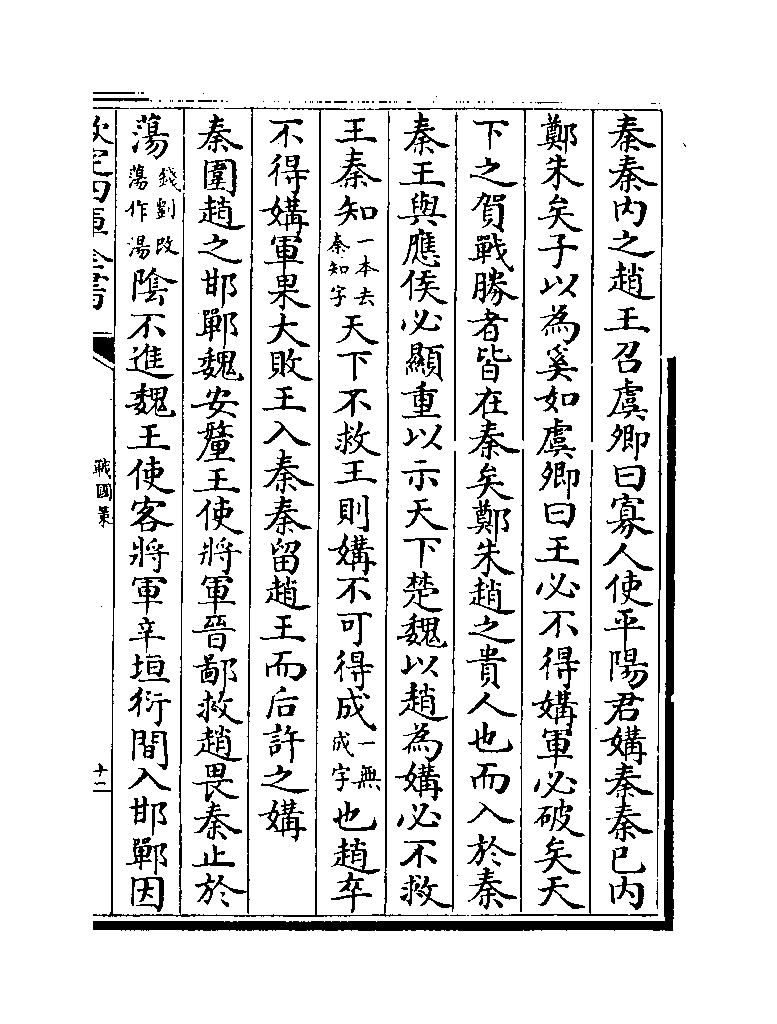 秦秦内之趙王召虞卿曰寡人使平陽君媾秦秦已内
鄭朱矣子以為奚如虞卿曰王必不得媾軍必破矣天
下之賀戰勝者皆在秦矣鄭朱趙之貴人也而入於秦
秦王與應侯必顯重以示天下楚魏以趙為媾必不救
王秦知一本去秦知字天下不救王則媾不可得成一無成字也趙卒
不得媾軍果大敗王入秦秦留趙王而后許之媾
秦圍趙之邯鄲魏安釐王使將軍晉鄙救趙畏秦止於
蕩錢劉改蕩作湯陰不進魏王使客將軍辛垣衍間入邯鄲因
欽定四庫全書
戰國策
十二